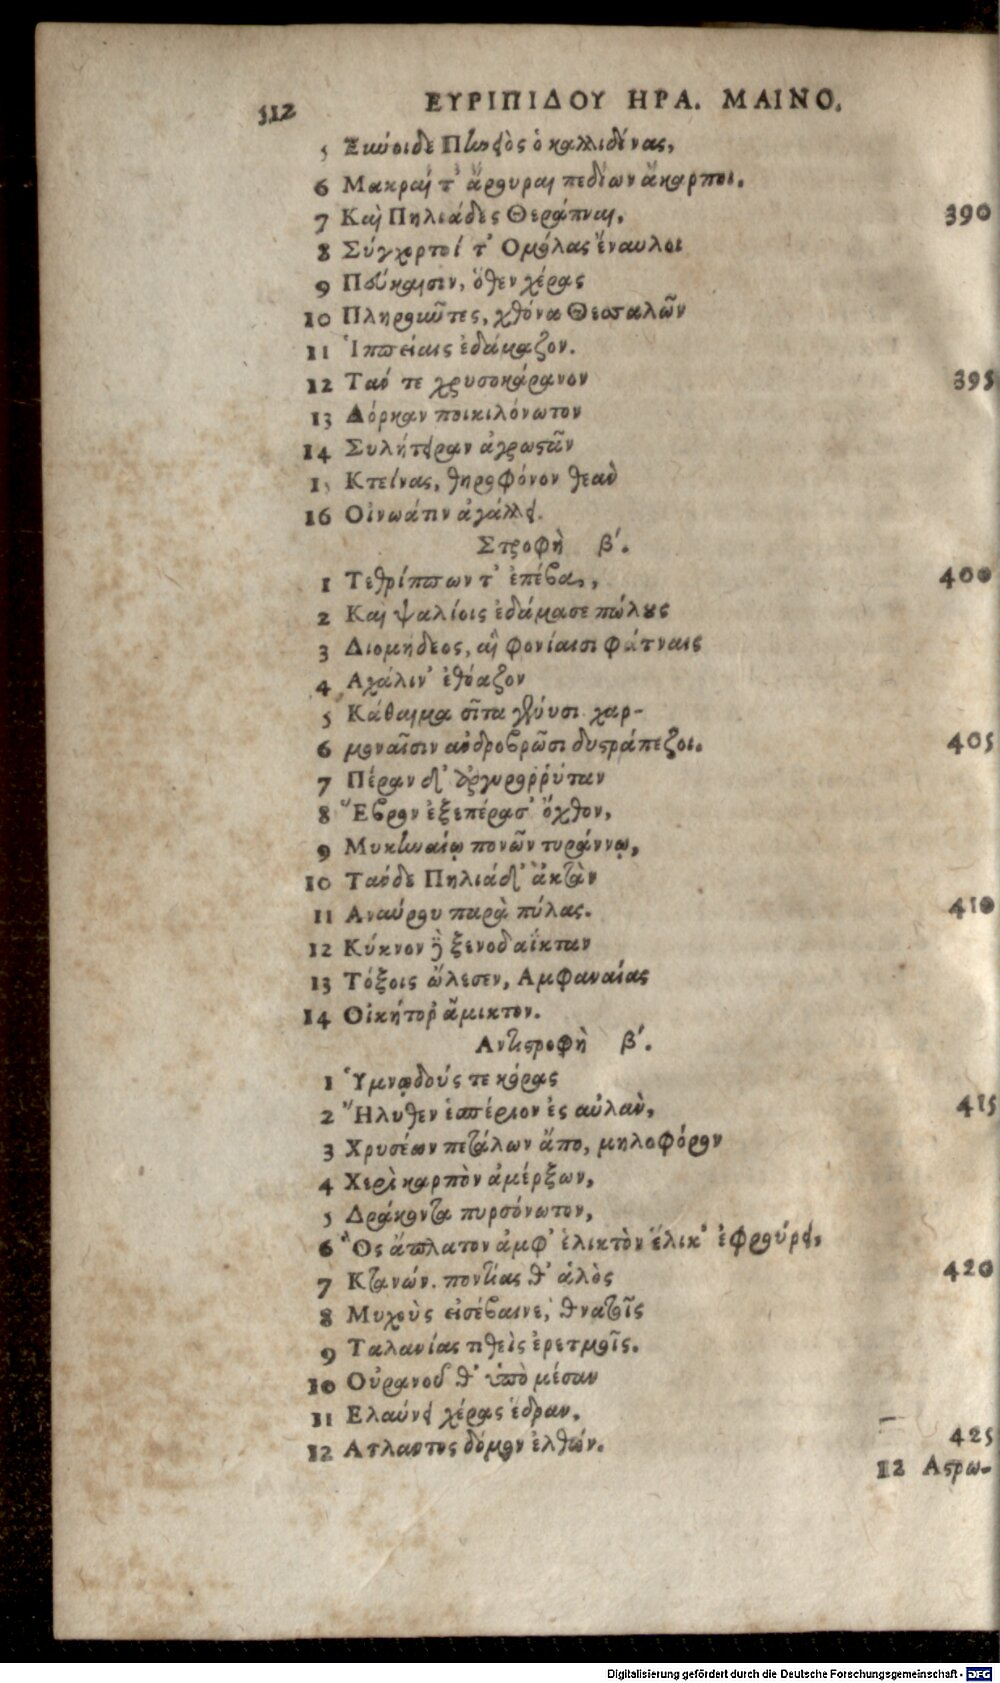 512 ΕΥΡΙΠΙΔΟΥ ΗΡΑ. ΜΑΙΝΟ.
5 Ξύνοιδε Πηνειὸς ὁ καλλιδίνας,
6 Μακραί τ' ἄρουραι πεδίων ἄκαρποι.
7 Καὶ Πηλιάδες Θεράπναι, 390
8 Σύγχορτοί τ' Ομόλας ἔναυλοι
9 Πεύκαισιν, ὅθεν χέρας
10 Πληροῦντες, χθόνα Θεσσαλῶν
11 Ἱππείαις ἐδάμαζον.
12 Τάν τε χρυσοκάρανον 395
13 Δόρκαν ποικιλόνωτον
14 Συλήτειραν ἀγρωστᾶν
15 Κτείνας, θηροφόνον θεὰν
16 Οἰνωάτιν ἀγάλλει.
Στροφὴ β'.
1 Τεθρίππων τ' ἐπέβας, 400
2 Καὶ ψαλίοις ἐδάμασε πώλους
3 Διομήδεος, αἳ φονίαισι φάτναις
4 Αχάλιν' ἐθόαζον
5 Κάθαιμα σῖτα γένυσι χαρ-
6 μοναῖσιν ἀνδροβρῶσι δυστράπεζοι. 405
7 Πέραν δ' ἀργυροῤῥύταν
8 Ἕβρον ἐξεπέρασ' ὄχθον,
9 Μυκηναίῳ πονῶν τυράννῳ,
10 Τάνδε Πηλιάδ' ἀκτὰν
11 Αναύρου παρὰ πύλας. 410
12 Κύκνον δὲ ξενοδαΐκταν
13 Τόξοις ὤλεσεν, Αμφαναίας
14 Οἰκήτορ' ἄμικτον.
Αντιστροφὴ β'.
1 Ὑμνῳδούς τε κόρας
2 Ἤλυθεν ἑσπέριον ἐς αὐλὰν, 415
3 Χρυσέων πετάλων ἄπο, μηλοφόρον
4 Χερὶ καρπὸν ἀμέρξων,
5 Δράκοντα πυρσόνωτον,
6 Ὃς ἄπλατον ἀμφ' ἑλικτὸν ἕλικ' ἐφρούρει,
7 Κτανών. ποντίας θ' ἁλὸς 420
8 Μυχοὺς εἰσέβαινε, θνατοῖς
9 Ταλανίας τιθεὶς ἐρετμοῖς.
10 Οὐρανοῦ θ' ὑπὸ μέσαν
11 Ελαύνει χέρας ἕδραν,
12 Ατλαντος δόμον ἐλθών. 425
12 Αστρω-
Digitalisierung gefördert durch die Deutsche Forschungsgemeinschaft - DFG